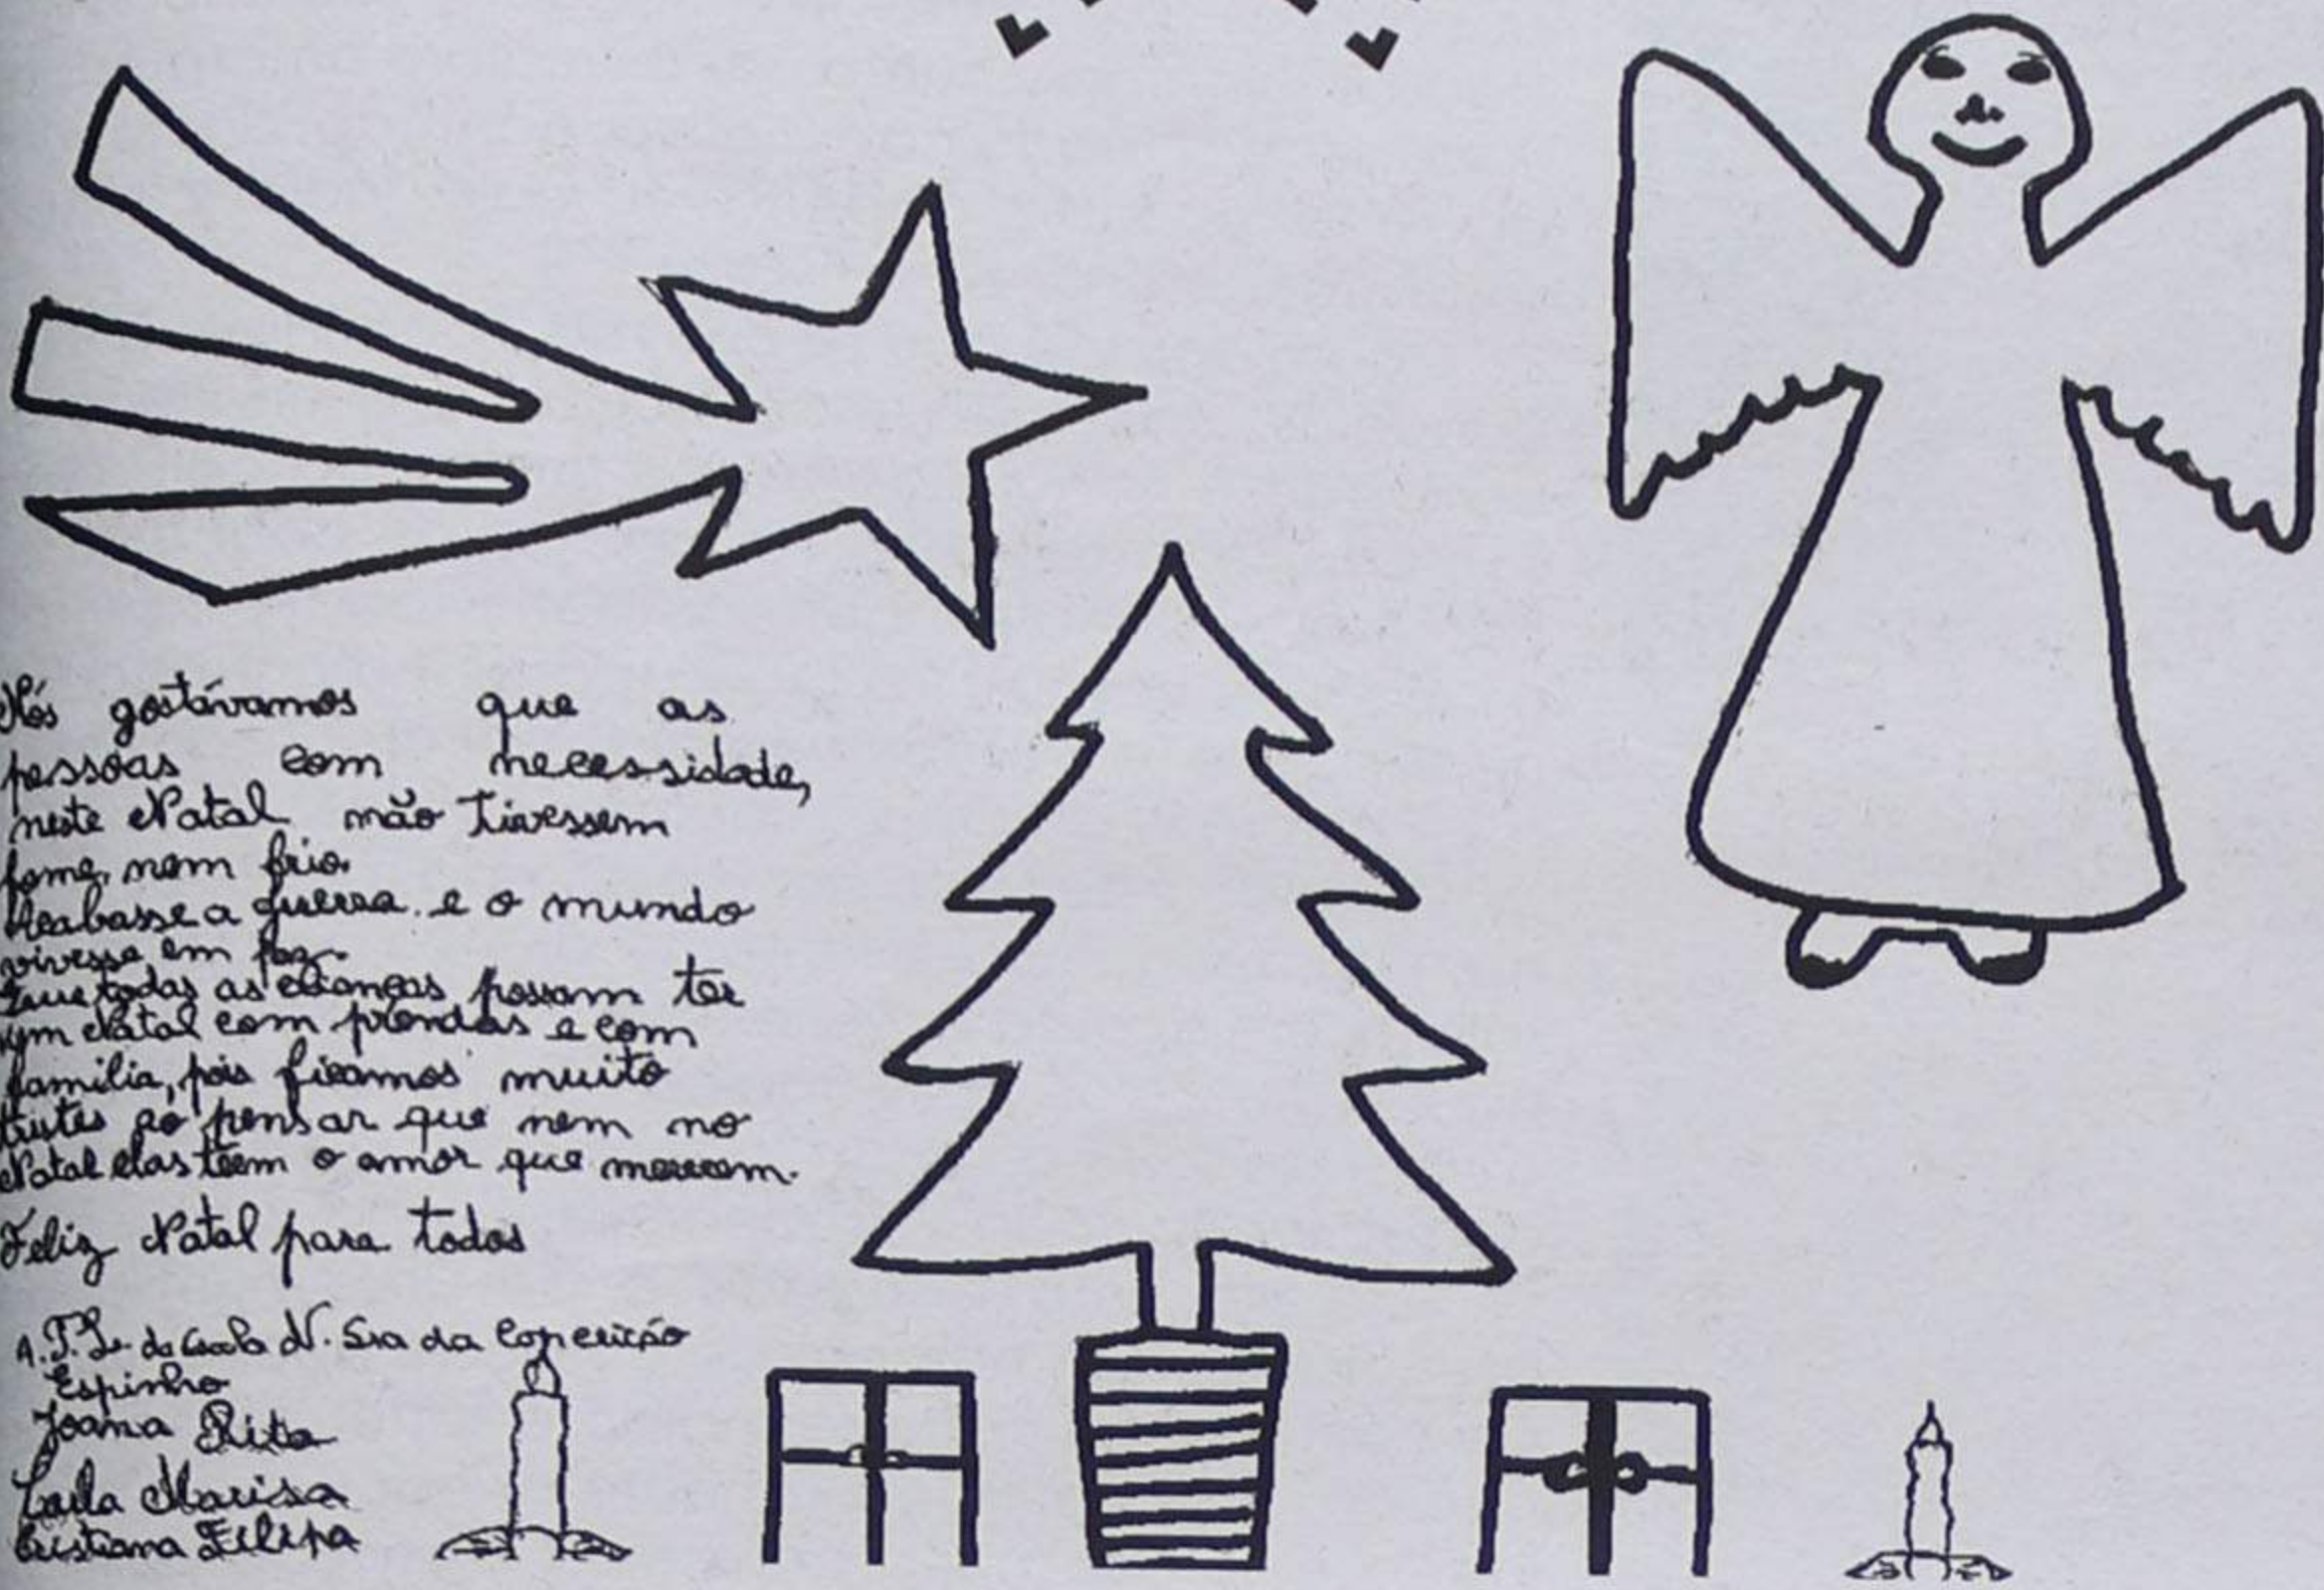 Nós gostávamos que as
pessoas com necessidade,
neste Natal não tivessem
fome, nem frio.
Acabasse a guerra e o mundo
vivesse em paz.
Que todas as crianças possam ter
um Natal com prendas e com
família, pois ficamos muito
tristes ao pensar que nem no
Natal elas teem o amor que merecem.
Feliz Natal para todos
A.T.L. da Escola N. Sra da Conceição
Espinho
Joana Rita
Carla Marisa
Cristiana Filipa